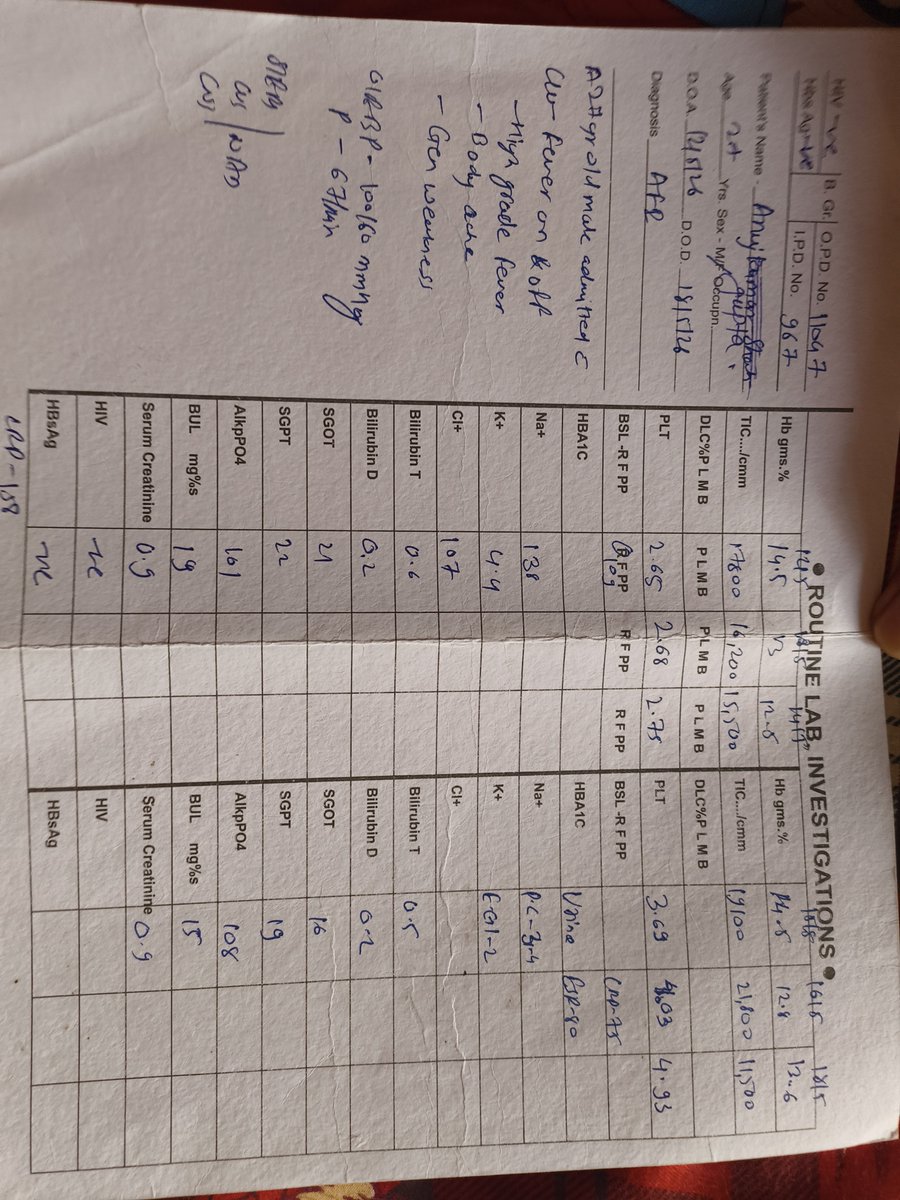 HIV -ve B. Gr. O.P.D. No. 11097
HBs Ag -ve I.P.D. No. 967
Patient's Name - Anuj gupta
Age 27 Yrs. Sex - M/F Occupn.
D.O.A. 12/5/26 D.O.D. 18/5/26
Diagnosis AFI
A 27 yr old male admitted c
c/o - Fever on & off
- High grade fever
- Body ache
- Gen weakness
O/E BP - 100/60 mmHg
P - 67/min
CVS / NAD
CNS
• ROUTINE LAB. INVESTIGATIONS •
14/5 15/8 16/5 18/5
Hb gms.% 14.5 13 12.5 Hb gms.% 14.5 12.8 12.6
TlC..../cmm 17800 16,200 15,500 TlC..../cmm 19100 21,800 11,500
DLC%P L M B P L M B P L M B P L M B DLC%P L M B
PLT 2.65 2.68 2.75 PLT 3.69 4.03 4.93
BSL -R F PP R F PP 109 R F PP R F PP BSL -R F PP CRP-75
HBA1C HBA1C Urine ESR-80
Na+ 138 Na+ PC-3-4
K+ 4.4 K+ Epi-1-2
Cl+ 107 Cl+
Bilirubin T 0.6 Bilirubin T 0.5
Bilirubin D 0.2 Bilirubin D 0.2
SGOT 21 SGOT 16
SGPT 22 SGPT 19
AlkpPO4 101 AlkpPO4 108
BUL mg%s 19 BUL mg%s 15
Serum Creatinine 0.9 Serum Creatinine 0.9
HIV -ve HIV
HBsAg -ve HBsAg
CRP-158